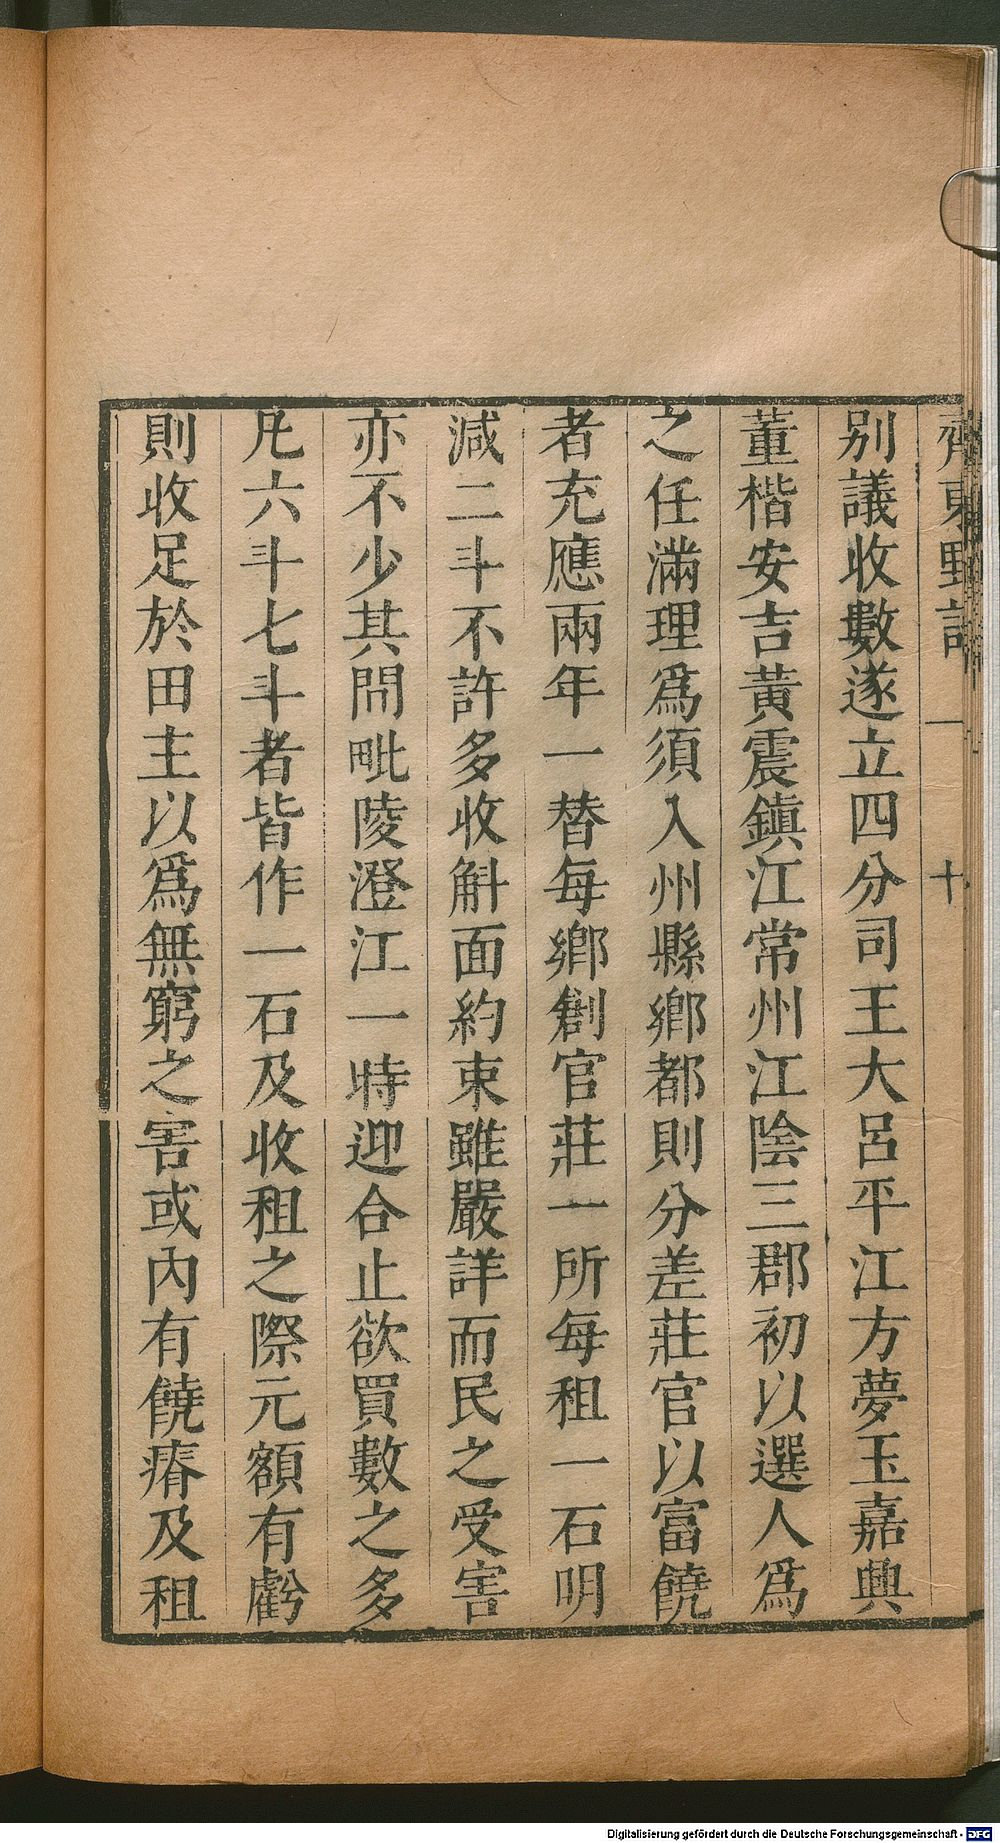 齊東野語
一
十
别議收數遂立四分司王大呂平江方夢玉嘉興
董楷安吉黄震鎮江常州江陰三郡初以選人爲
之任滿理爲須入州縣鄉都則分差莊官以富饒
者充應兩年一替每鄉創官莊一所每租一石明
減二斗不許多收斛面約束雖嚴詳而民之受害
亦不少其間毗陵澄江一時迎合止欲買數之多
凡六斗七斗者皆作一石及收租之際元額有虧
則收足於田主以爲無窮之害或內有饒瘠及租
Digitalisierung gefördert durch die Deutsche Forschungsgemeinschaft - DFG